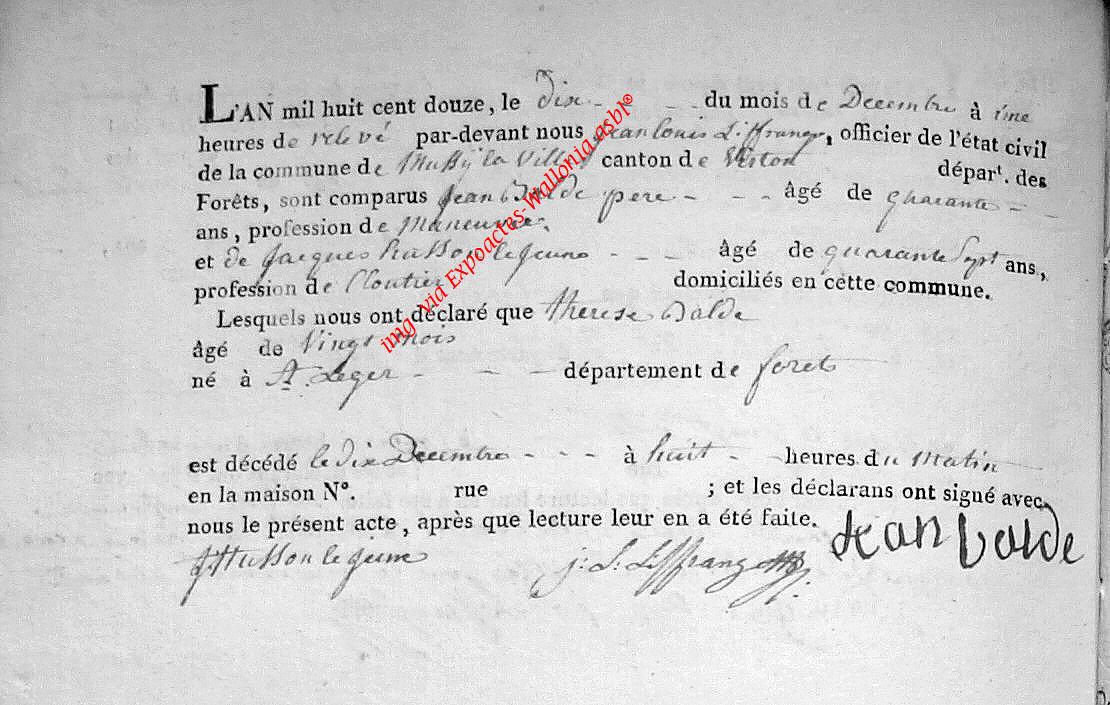 L'AN mil huit cent douze, le dix - - - du mois de Decembre à une
heures de relevé par-devant nous jean louis Liffrange, officier de l'état civil
de la commune de Mussÿ la Ville canton de Virton départ. des
Forêts, sont comparus jean Balde pere - - - âgé de quarante - -
ans, profession de Maneuvre
et de jacques husson le jeune - - - âgé de quarante Sept ans,
profession de Cloutier domiciliés en cette commune.
Lesquels nous ont déclaré que therese Balde
âgé de Vingt mois
né à St. Leger - - - département de forets
est décédé le dix Decembre - - - à huit - heures du Matin
en la maison N°. rue ; et les déclarans ont signé avec
nous le présent acte, après que lecture leur en a été faite. jean balde
j husson le jeune j: L: Liffrange
img via Expoactes-Wallonia asbl®